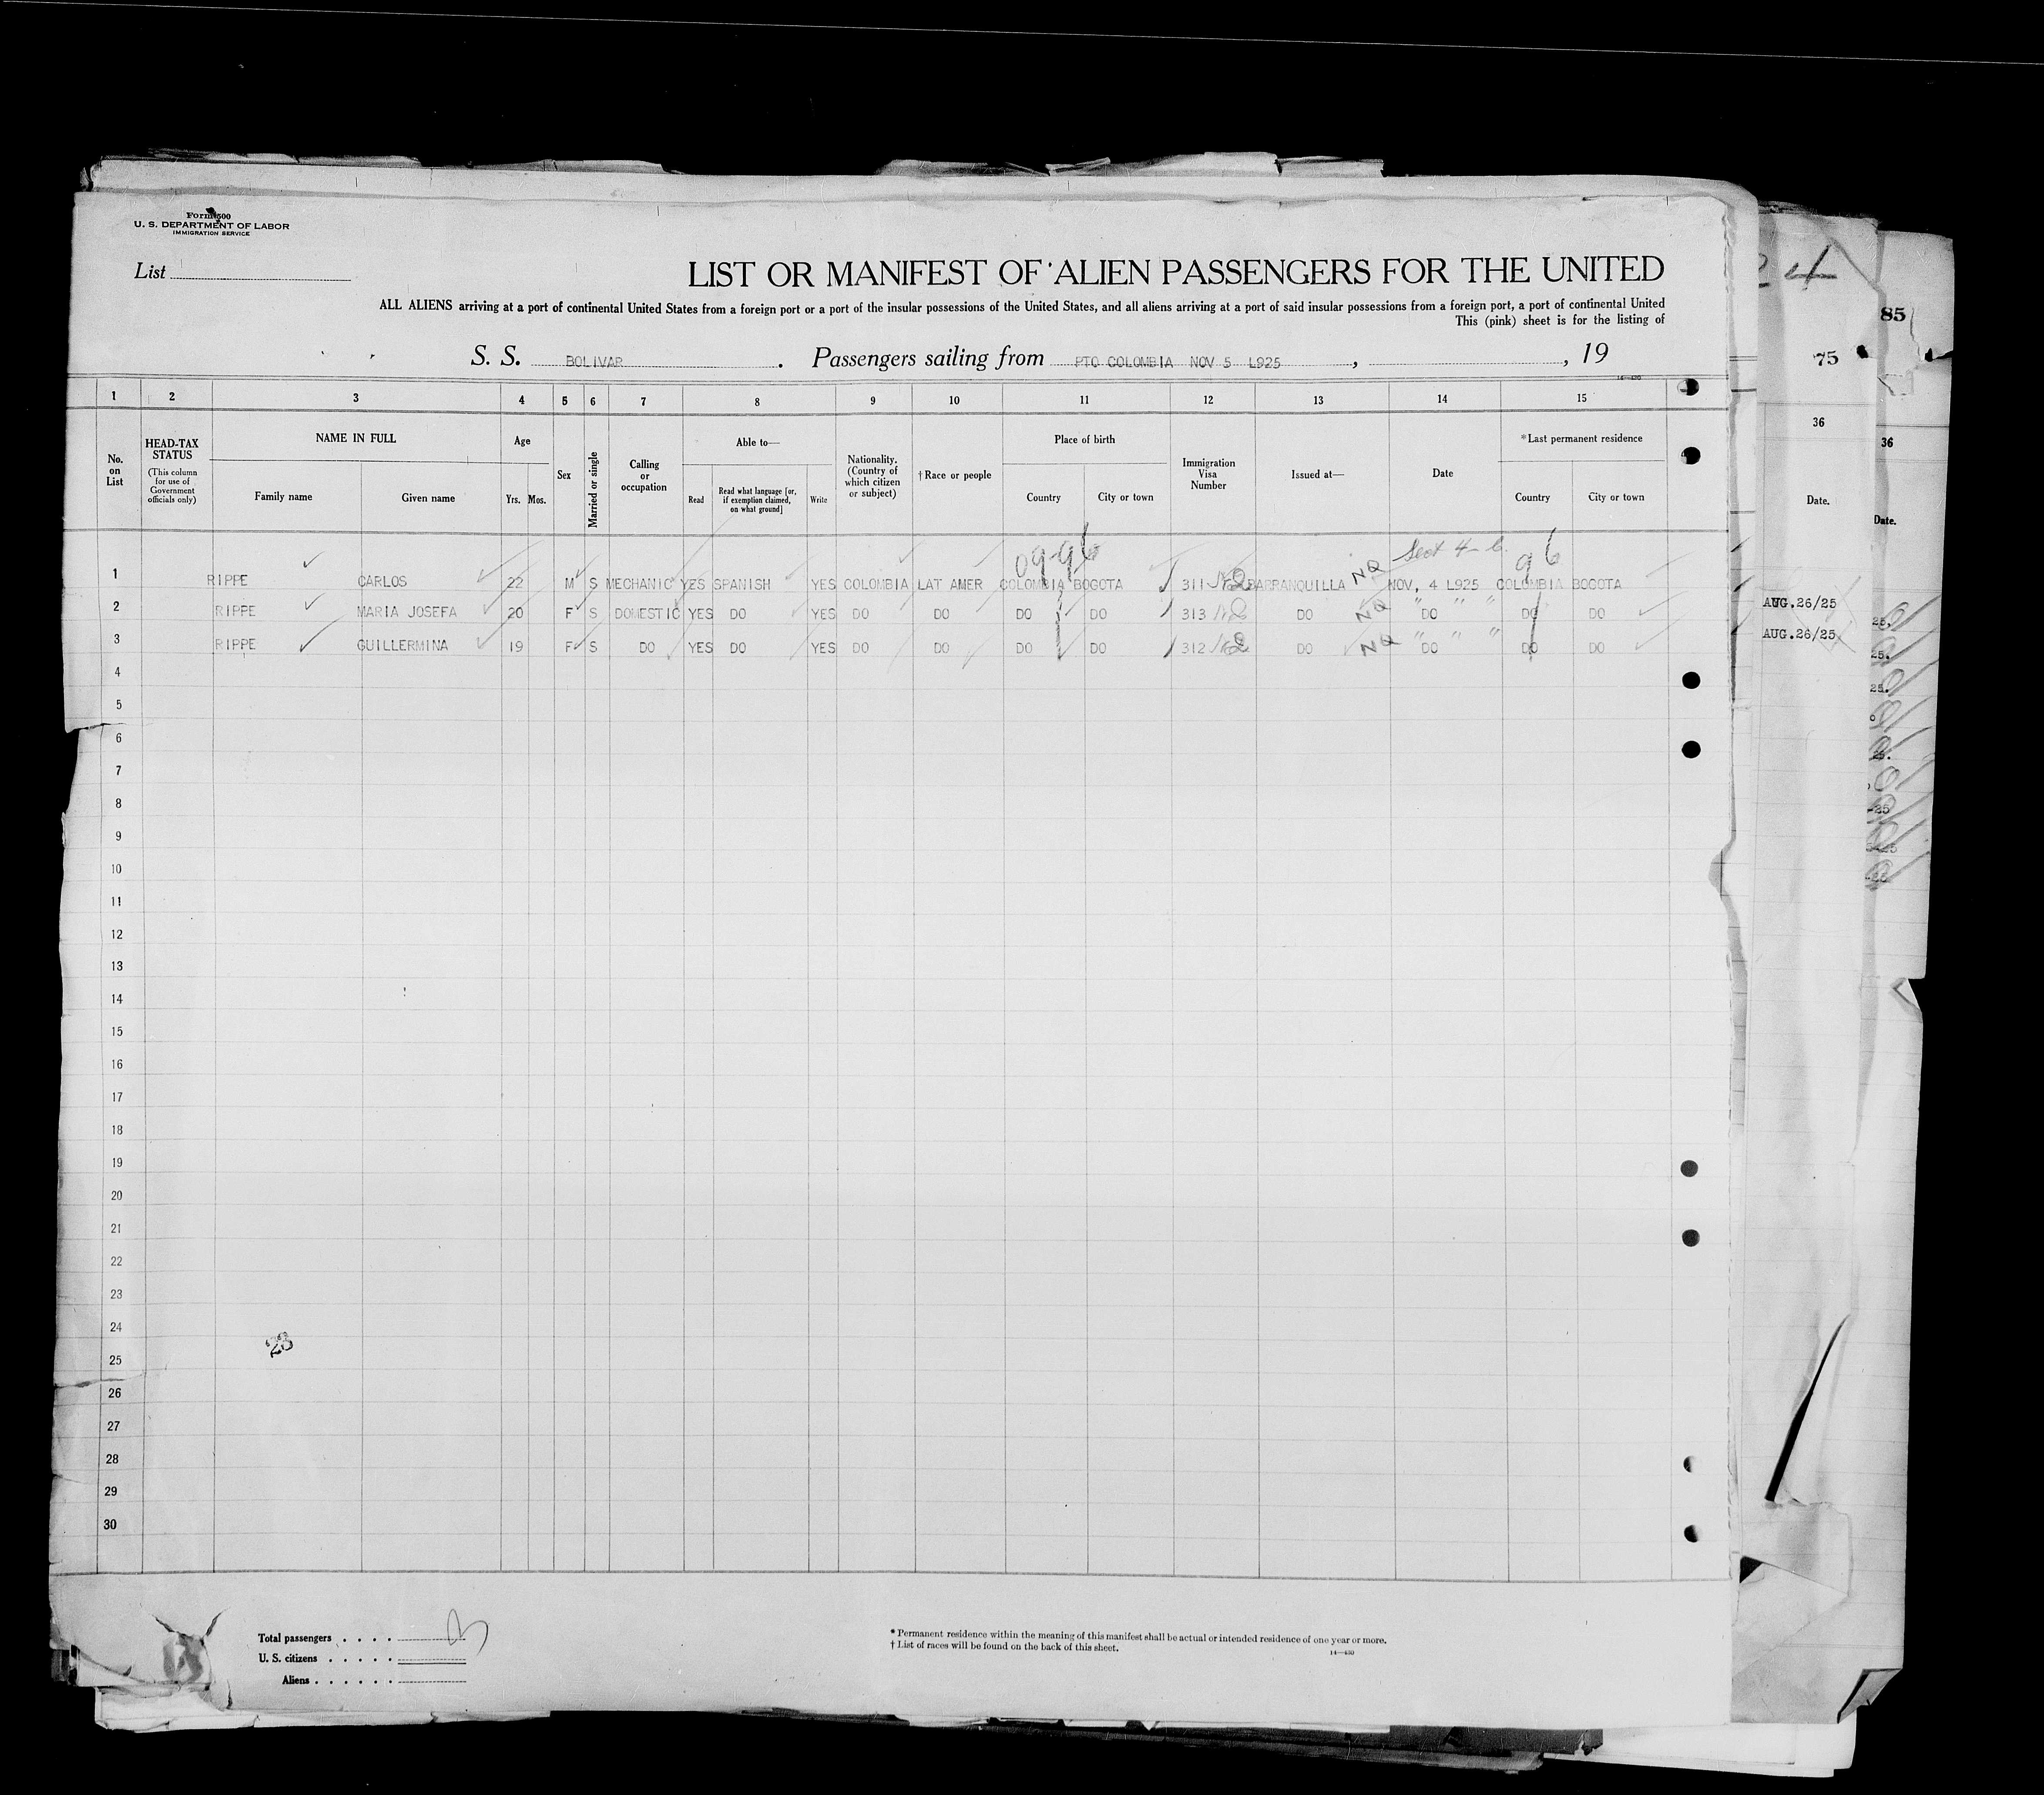 Form 500
U. S. DEPARTMENT OF LABOR
IMMIGRATION SERVICE
List
LIST OR MANIFEST OF ALIEN PASSENGERS FOR THE UNITED
ALL ALIENS arriving at a port of continental United States from a foreign port or a port of the insular possessions of the United States, and all aliens arriving at a port of said insular possessions from a foreign port, a port of continental United
This (pink) sheet is for the listing of
S. S. BOLIVAR. Passengers sailing from PTO COLOMBIA NOV 5 L925, , 19
14—430
1 2 3 4 5 6 7 8 9 10 11 12 13 14 15
No. on List
HEAD-TAX STATUS
(This column for use of Government officials only)
NAME IN FULL
Family name Given name
Age
Yrs. Mos.
Sex
Married or single
Calling or occupation
Able to—
Read
Read what language [or, if exemption claimed, on what ground]
Write
Nationality. (Country of which citizen or subject)
†Race or people
Place of birth
Country City or town
Immigration Visa Number
Issued at—
Date
*Last permanent residence
Country City or town
0996 Sect 4-c. 96
1 RIPPE CARLOS 22 M S MECHANIC YES SPANISH YES COLOMBIA LAT AMER COLOMBIA BOGOTA 311 BARRANQUILLA NQ NOV, 4 L925 COLOMBIA BOGOTA
2 RIPPE MARIA JOSEFA 20 F S DOMESTIC YES DO YES DO DO DO DO 313 DO NQ " DO " " DO DO
3 RIPPE GUILLERMINA 19 F S DO YES DO YES DO DO DO DO 312 DO NQ " DO " " DO DO
4
5
6
7
8
9
10
11
12
13
14
15
16
17
18
19
20
21
22
23
24
25
26
27
28
29
30
23
Total passengers . . . . 3
U. S. citizens . . . . .
Aliens . . . . . .
* Permanent residence within the meaning of this manifest shall be actual or intended residence of one year or more.
† List of races will be found on the back of this sheet.
14—430
24
75
36
Date.
AUG.26/25
AUG.26/25
85
36
Date.